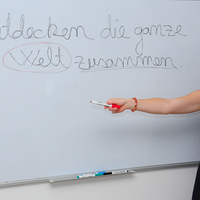 tdecken die ganze
Welt zusammen.